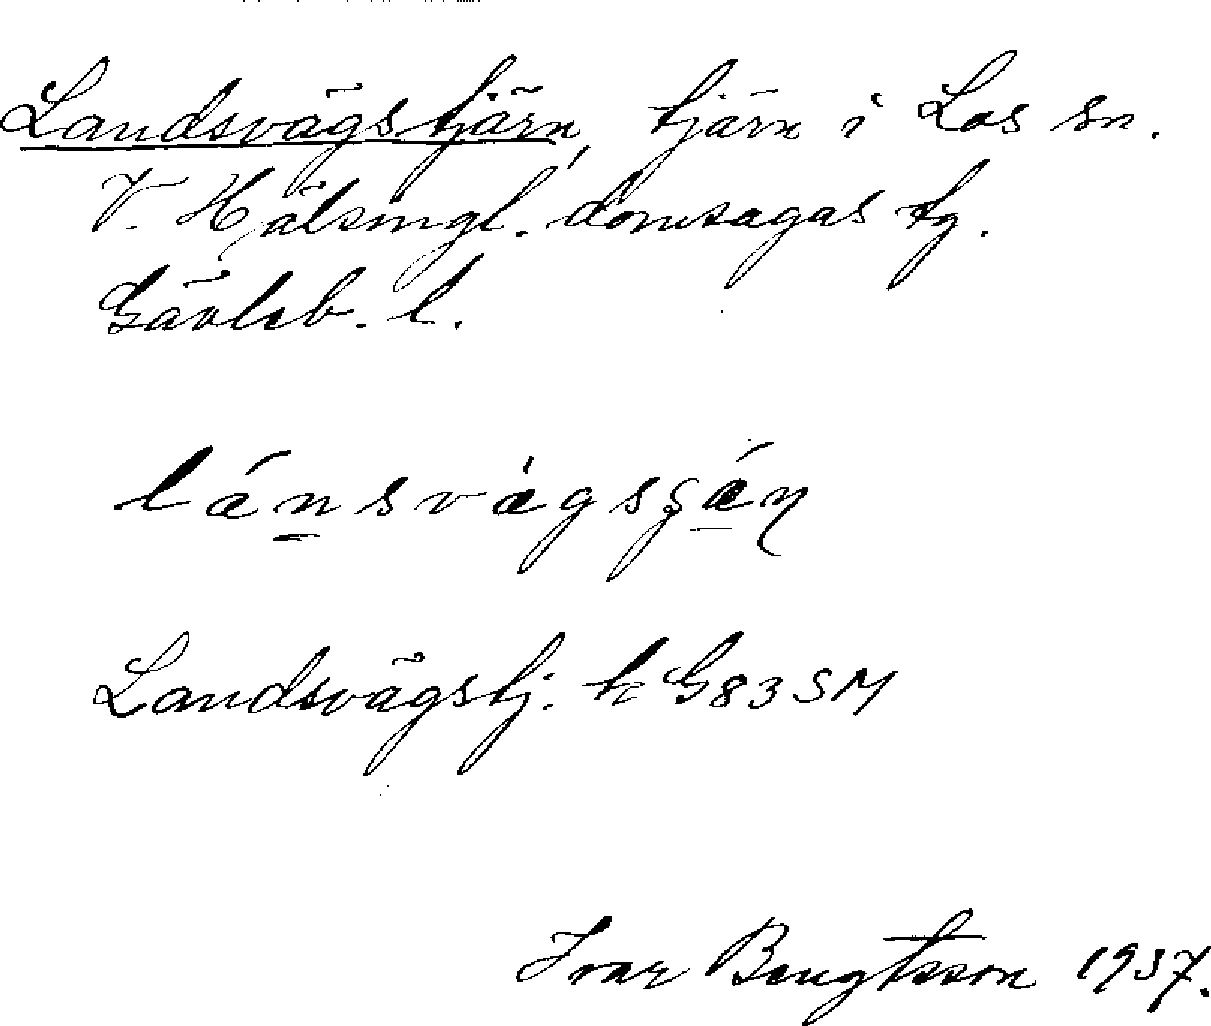 Landsvägstjärn, tjärn i Los sn.
V. Hälsingl. domsagas tg.
Gävleb. l.
lánsvágsʂán
Landsvägstj. k G83SM
Ivar Bengtsson 1937.